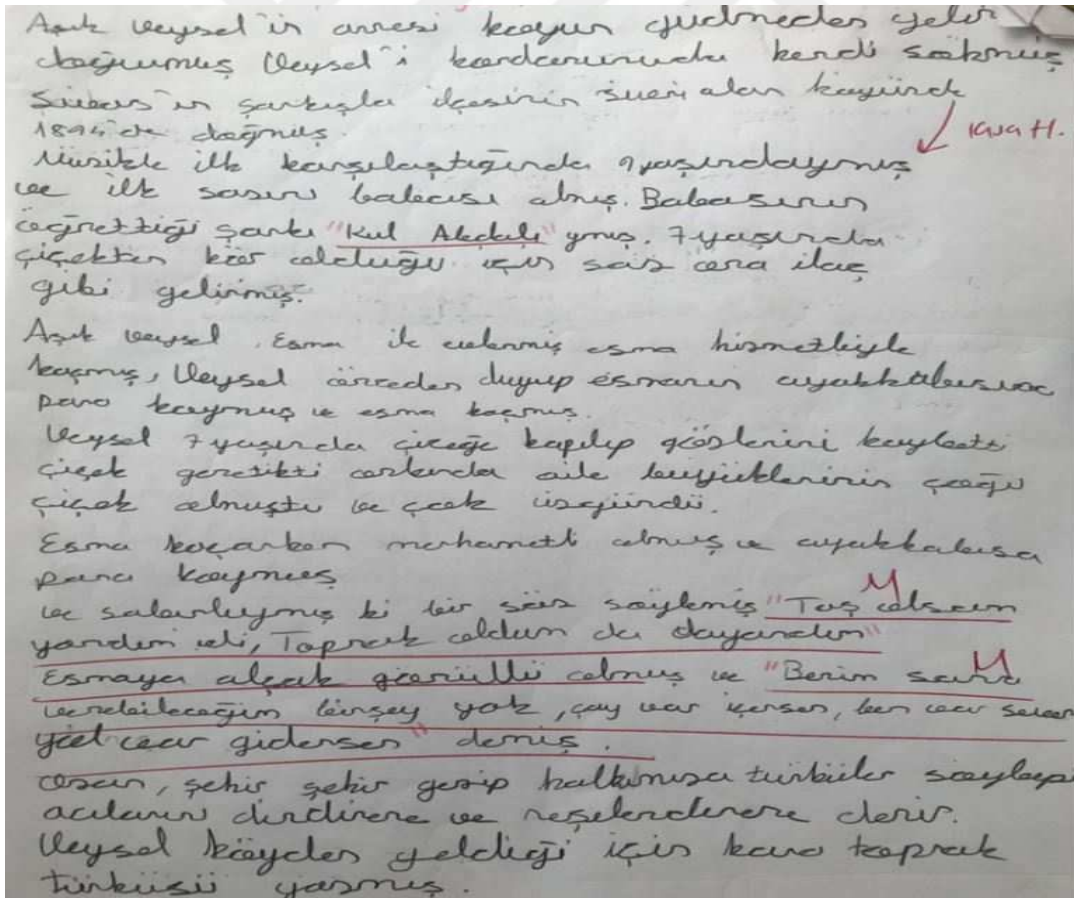 Aşık Veysel'in annesi koyun gütmeden gelir
doğurmuş Veysel'i kordonunuda kendi sökmüş
Sivas'ın şarkışla ilçesinin Sivri alan köyünde
1894'de doğmuş.
Müzikle ilk karşılaştığında 9 yaşındaymış
ve ilk sazını babası almış. Babasının
öğrettiği şarkı "Kul Abdal"ymış. 7 yaşında
çiçekten kör olduğu için saz ona ilaç
gibi gelirmiş.
Aşık veysel, Esma ile evlenmiş esma hizmetliyle
kaçmış, Veysel önceden duyup esmanın ayakkabısına
para koymuş ve esma kaçmış.
Veysel 7 yaşında çiçeğe kapılıp gözlerini kaybetti
çiçek aile büyüklerinin çoğu
çiçek olmuştu ve çok üzgündü.
Esma kaçarken merhametli olmuş ve ayakkabısa
para koymuş
ve sabırlıymış ki bir söz söylemiş "Taş olsam
yandım idi, Toprak oldum da dayandım"
Esmaya alçak gönüllü olmuş ve "Benim sana
verebileceğim birşey yok, çay var içersen, ben var seversen
yol var gidersen" demiş.
ozan, şehir şehir gezip halkımıza türküler söyleyip
acılarını dindirene ve neşelendirene denir.
Veysel köyden geldiği için kara toprak
türküsü yazmış.
M
M